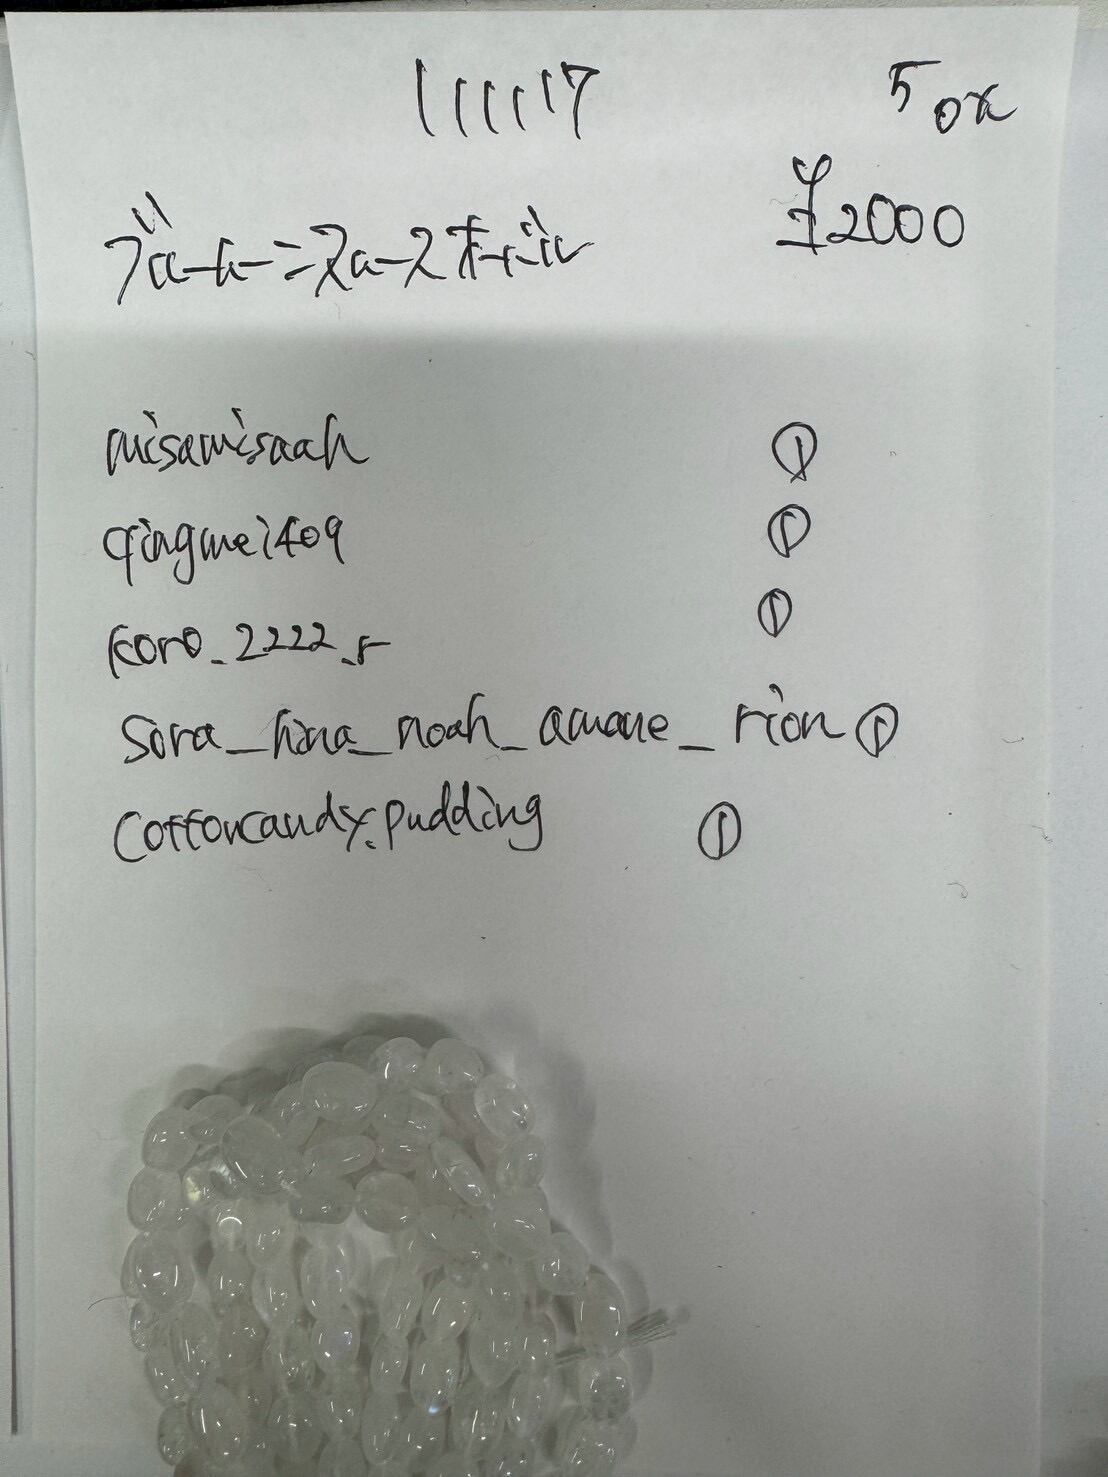 111117 50x
¥2000
ブルームーンクォーツオーバル
misamisaah
①
qingmei409
①
koro_2222_r
①
Sora_hina_noah_amane_rion ①
Cottoncandy.pudding ①